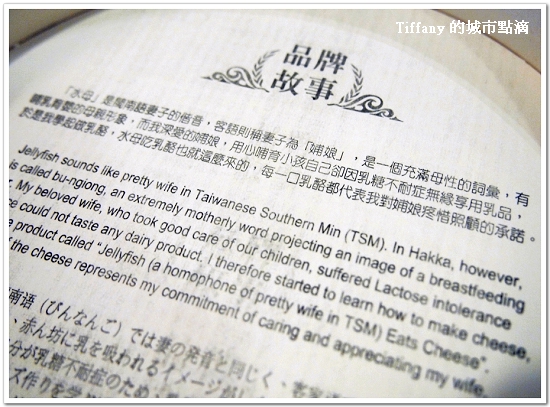 Tiffany 的城市點滴
品牌
故事
「水母」是閩南語妻子的偕音，客語則稱妻子為「婦娘」，是一個充滿母性的詞彙，有
哺乳育嬰的母親形象，而我深愛的婦娘，用心哺育小孩自己卻因乳糖不耐症無緣享用乳品，
於是我學起做乳酪，水母吃乳酪也就這麼來的，每一口乳酪都代表我對婦娘疼惜照顧的承諾。
Jellyfish sounds like pretty wife in Taiwanese Southern Min (TSM). In Hakka, however,
is called bu-nglong, an extremely motherly word projecting an image of a breastfeeding
My beloved wife, who took good care of our children, suffered Lactose intolerance
could not taste any dairy product. I therefore started to learn how to make cheese,
product called "Jellyfish (a homophone of pretty wife in TSM) Eats Cheese".
of the cheese represents my commitment of caring and appreciating my wife.
南语（びんなんご）では妻の発音と同じく、客家
、赤ん坊に乳を吸われるイメージが
分が乳糖不耐症のため、
ズ作りを学